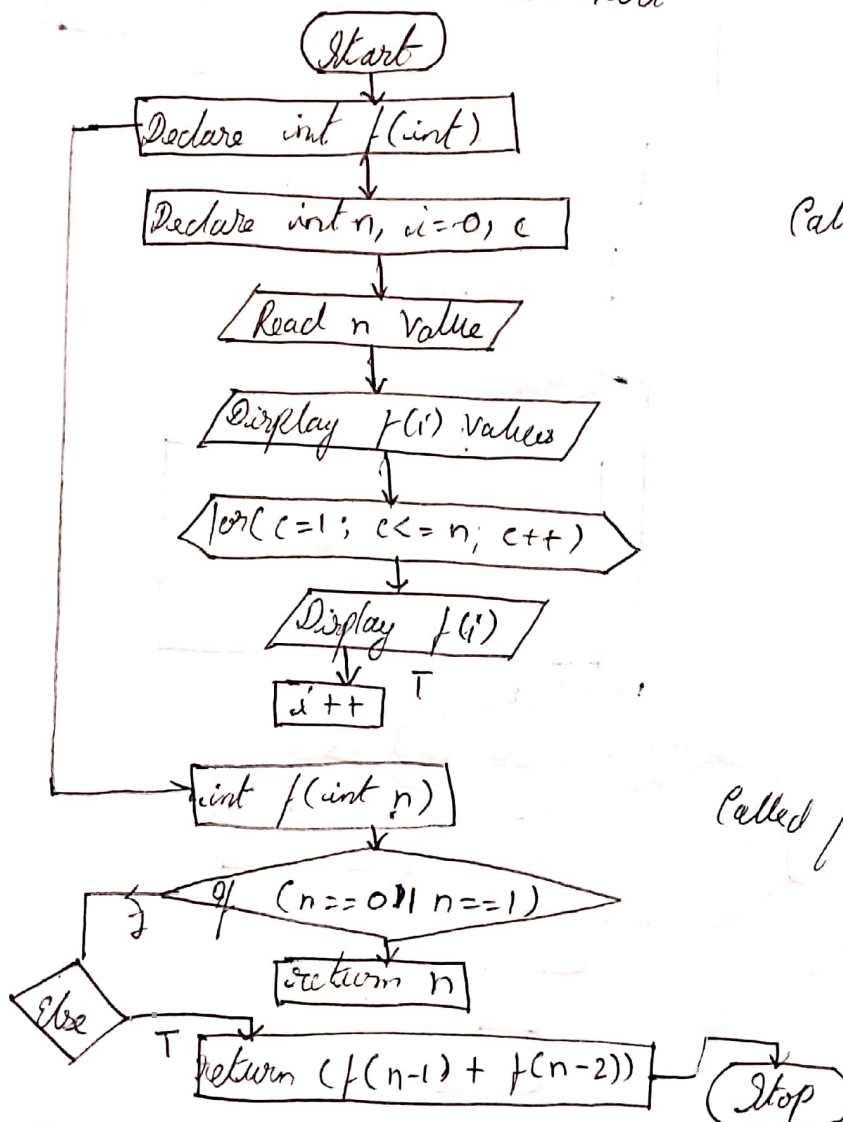 Start
Declare int f(int)
Declare int n, i=0, c
Read n Value
Display f(i) Values
for( c=1 ; c<= n; c++)
Display f(i)
T
i++
int f(int n)
Called
if (n==0 || n==1)
f
return n
Else
T
return (f(n-1) + f(n-2))
Stop